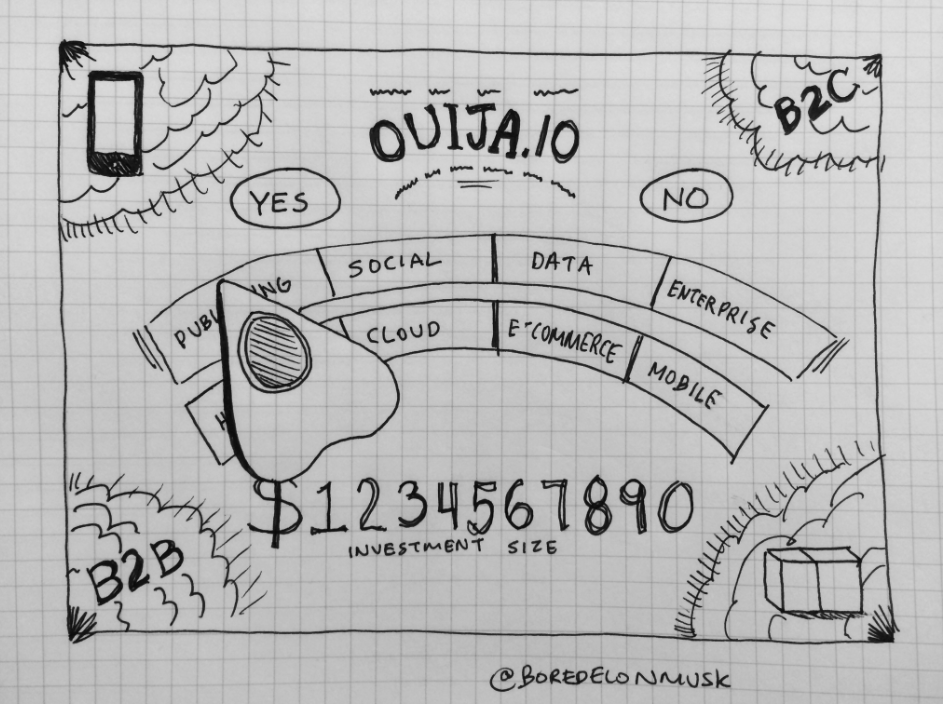 OUIJA.IO
B2C
YES
NO
PUBL ING
SOCIAL
DATA
ENTERPRISE
CLOUD
E-COMMERCE
MOBILE
$1234567890
INVESTMENT SIZE
B2B
@BOREDELONMUSK